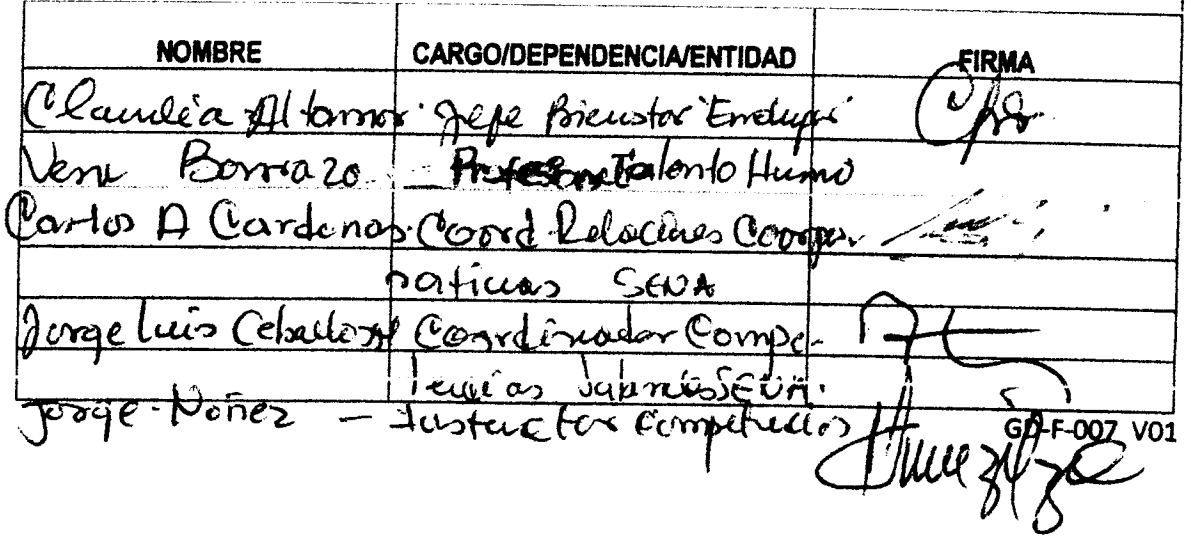 NOMBRE CARGO/DEPENDENCIA/ENTIDAD FIRMA
Claudia Altamar Jefe Bienestar
Borrazo Talento Humno
Carlos A Cardenas Coord Relaciones Coorpo-
rativas SENA
Jorge Luis Ceballos Coordinador Compe-
tencias SENA.
Jorge Noñez - Instructor Competencias
GD-F-007 V01